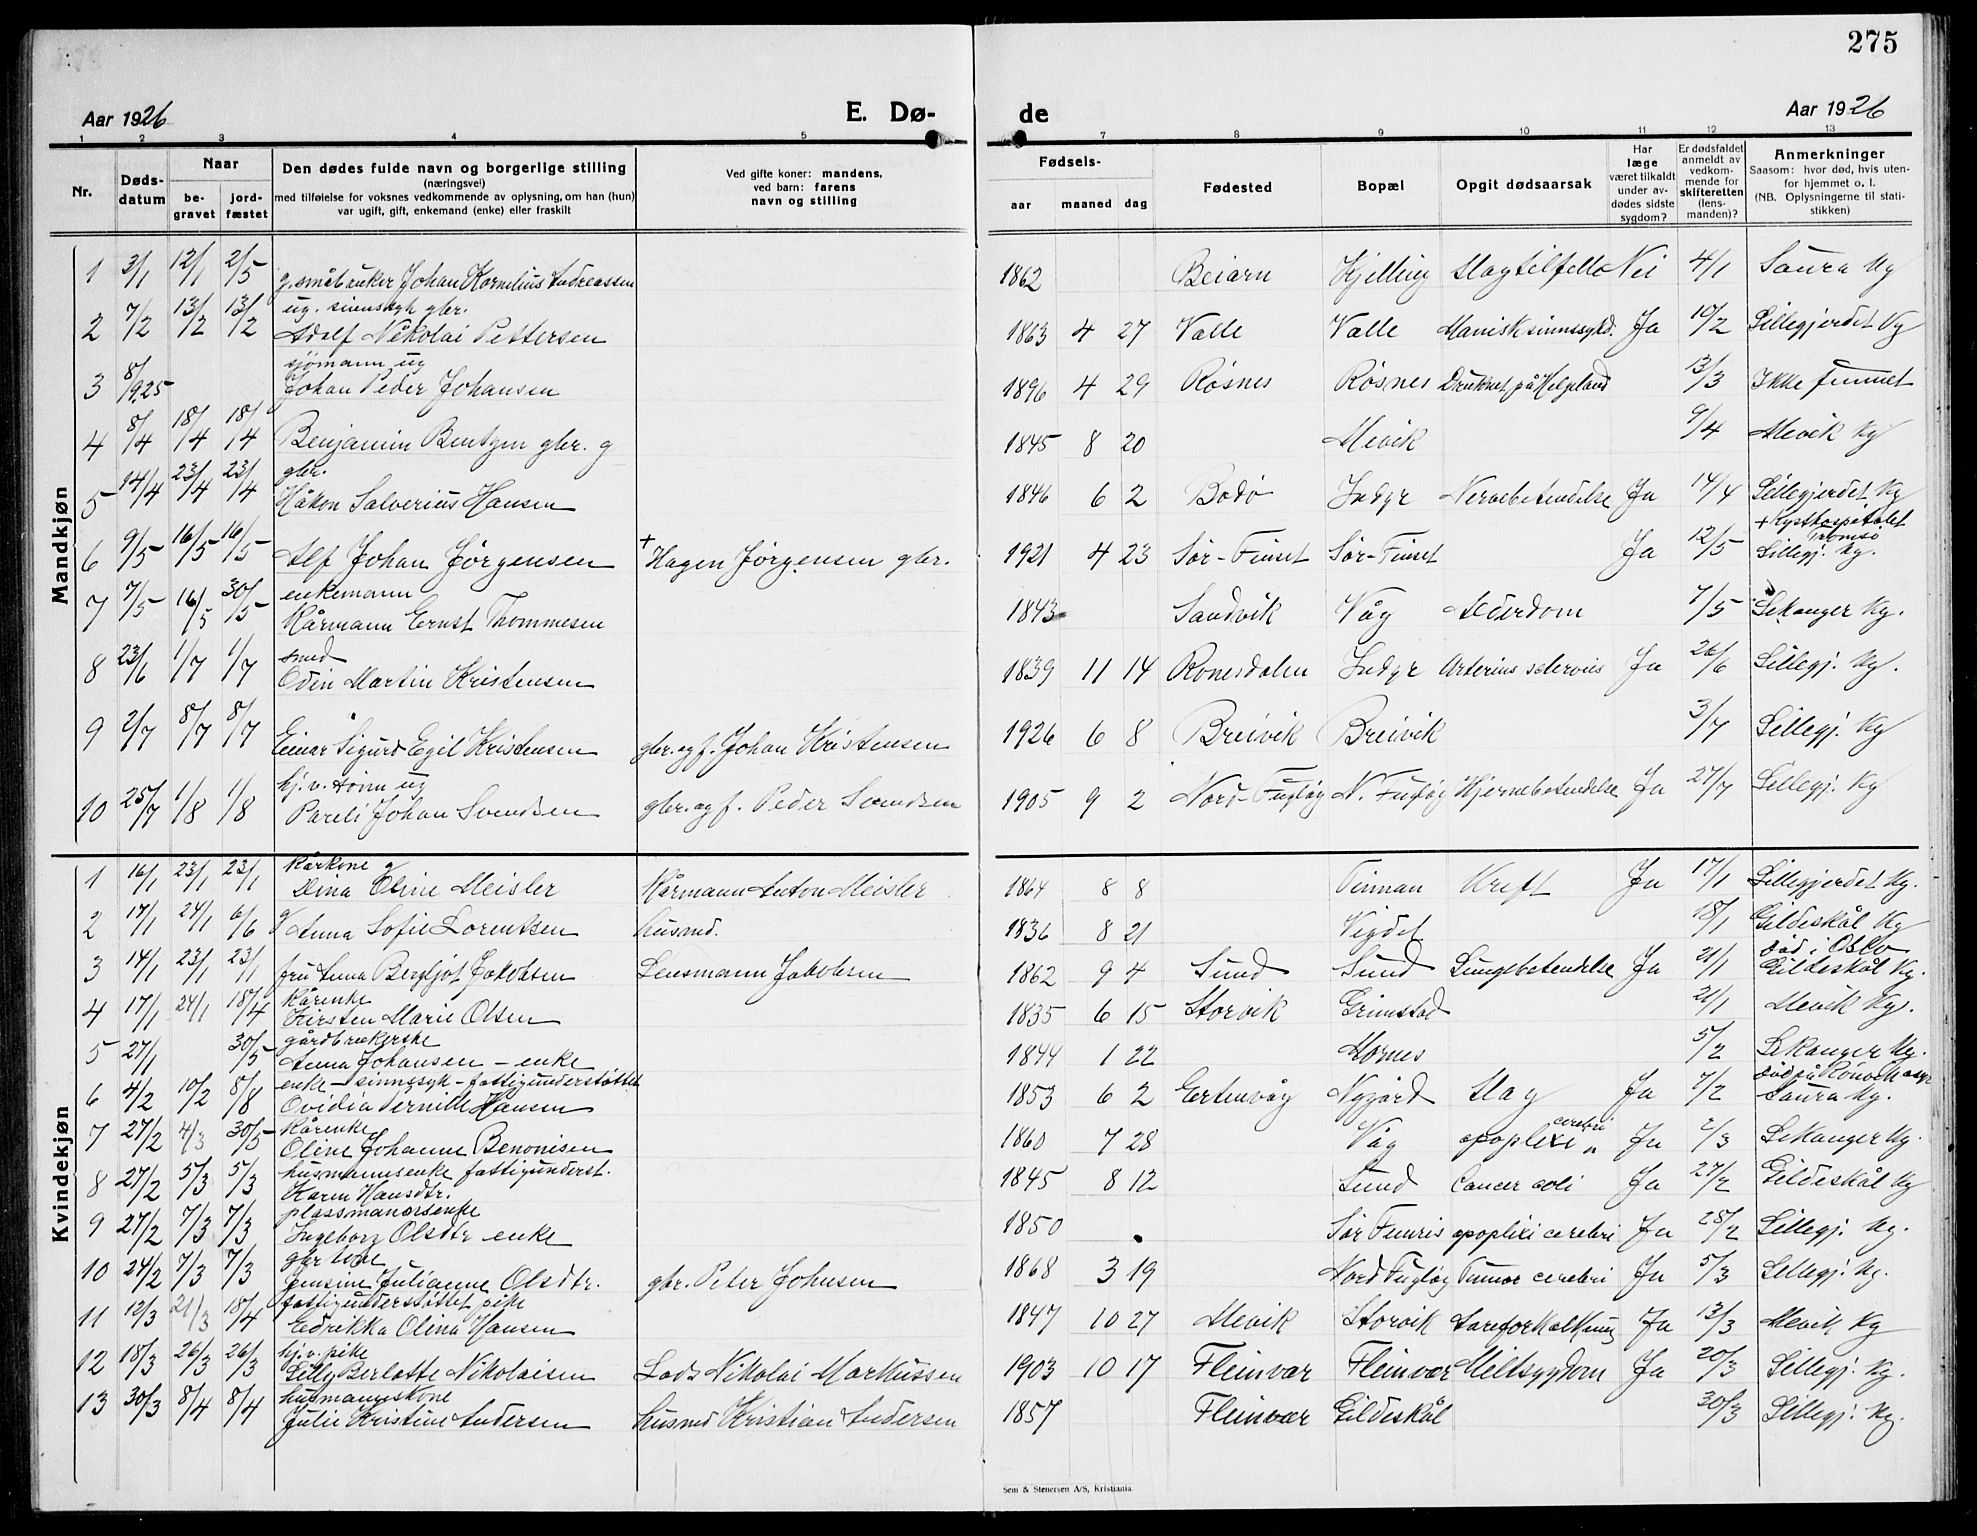 275
Aar 1926 E. Dø- de Aar 1926
1 2 3 4 5 7 8 9 10 11 12 13
Nr. Døds-datum Naar be-gravet jord-fæstet Den dødes fulde navn og borgerlige stilling (næringsvei) med tilføielse for voksnes vedkommende av oplysning, om han (hun) var ugift, gift, enkemand (enke) eller fraskilt Ved gifte koner: mandens, ved barn: farens navn og stilling Fødsels- aar maaned dag Fødested Bopæl Opgit dødsaarsak Har læge været tilkaldt under av-dødes sidste sygdom? Er dødsfaldet anmeldt av vedkom-mende for skifteretten (lens-manden)? Anmerkninger Saasom: hvor død, hvis uten-for hjemmet o. l. (NB. Oplysningerne til stati-stikken)
Mandkjøn
1 3/1 12/1 2/5 g. småbruker Johan Kornelius Andreassen 1862 Beiarn Kjelling Slagtilfelle Nei 4/1 Saura Kg
2 7/2 13/2 13/2 ug. sinnssyk gbr. Adolf Nikolai Pettersen 1863 4 27 Valle Valle Manisk sinnssykd. Ja 10/2 Lillegjerdet Kg
3 8/1925 sjömann ug Johan Peder Johansen 1896 4 29 Røsnes Røsnes Druknet på Helgeland 13/3 Ikke funnet
4 8/4 18/4 18/4 Benjamin Bentzen gbr. g 1845 8 20 Mevik 9/4 Mevik Kg
5 14/4 23/4 23/4 gbr. Håkon Salverius Hansen 1846 6 2 Bodø Indyr Nervebetendelse Ja 14/4 Lillegjerdet Kg
6 9/5 16/5 16/5 Alf Johan Jørgensen + Hagen Jørgensen gbr. 1921 4 23 Sør-Finset Sør-Finset Ja 12/5 + Kysthospitalet Tromsö Lillegj. Kg.
7 7/5 16/5 30/5 enkemann Kårmann Ernst Thommesen 1843 Sandvik Våg Alderdom 7/5 Lekanger Kg.
8 23/6 1/7 1/7 smed Odin Martin Kristensen 1839 11 14 Ronesdalen Indyr Arterius sclerosis Ja 26/6 Lillegj. Kg.
9 2/7 8/7 8/7 Einar Sigurd Egil Kristensen gbr. og f. Johan Kristensen 1926 6 8 Breivik Breivik 3/7 Lillegj. Kg
10 25/7 1/8 1/8 hj.v. sønn ug Pareli Johan Svendsen gbr. og f. Peder Svendsen 1905 9 2 Nord-Fugløy N. Fugløy Hjernebetendelse Ja 27/7 Lillegj. Kg
Kvindekjøn
1 16/1 23/1 23/1 Kårkone g Dina Oline Meisler Kårmann Anton Meisler 1864 8 8 Finnan Kreft Ja 17/1 Lillegjerdet Kg.
2 17/1 24/1 6/6 g Anna Sofie Lorentzen husmd. 1836 8 21 Vigdel 18/1 Gildeskål Kg
3 14/1 23/1 23/1 fru Anna Bergljot Jakobsen Lensmann Jakobsen 1862 9 4 Sund Sund Lungebetendelse Ja 21/1 död i Oslo Gildeskål Kg.
4 17/1 24/1 18/4 Kårenke Kirsten Marie Olsen 1835 6 15 Storvik Grimstad 21/1 Mevik Kg.
5 27/1 30/5 gårdbrukerske Anna Johansen - enke 1844 1 22 Hornes 5/2 Lekanger Kg.
6 4/2 10/2 8/8 enke - sinnssyk - fattigunderstøttet Ovidia Pernille Hansen 1853 6 2 Ertenvåg Nygård Slag Ja 7/2 död på Rönvik asyl Saura Kg.
7 27/2 4/3 30/5 Kårenke Oline Johanne Benonisen 1860 7 28 Våg apoplexi cerebri Ja 2/3 Lekanger Kg.
8 27/2 5/3 5/3 husmannsenke fattigunderst. Karen Hansdtr. 1845 8 12 Sund Cancer coli Ja 27/2 Gildeskål Kg
9 27/2 7/3 7/3 plassmannsenke Ingeborg Olsdtr enke 1850 Sør Finnis apoplexi cerebri Ja 28/2 Lillegj. Kg.
10 24/2 7/3 7/3 gbr kone Jensine Julianne Olsdtr. gbr. Peter Johnsen 1868 3 19 Nord Fugløy Tumor cerebri Ja 5/3 Lillegj. Kg.
11 12/3 21/3 18/4 fattigunderstøttet pike Edrikka Olina Hansen 1847 10 27 Mevik Storvik Åreforkalkning Ja 13/3 Mevik Kg
12 18/3 26/3 26/3 hj.v. pike Lilly Berlotte Nikolaisen Lods Nikolai Markussen 1903 10 17 Fleinvær Fleinvær Miltsygdom Ja 20/3 Lillegj. Kg.
13 30/3 8/4 8/4 husmannskone Julie Kristine Andersen husmd Kristian Andersen 1857 Fleinvær Gildeskål 30/3 Lillegj. Kg.
Sem & Stenersen A/S, Kristiania